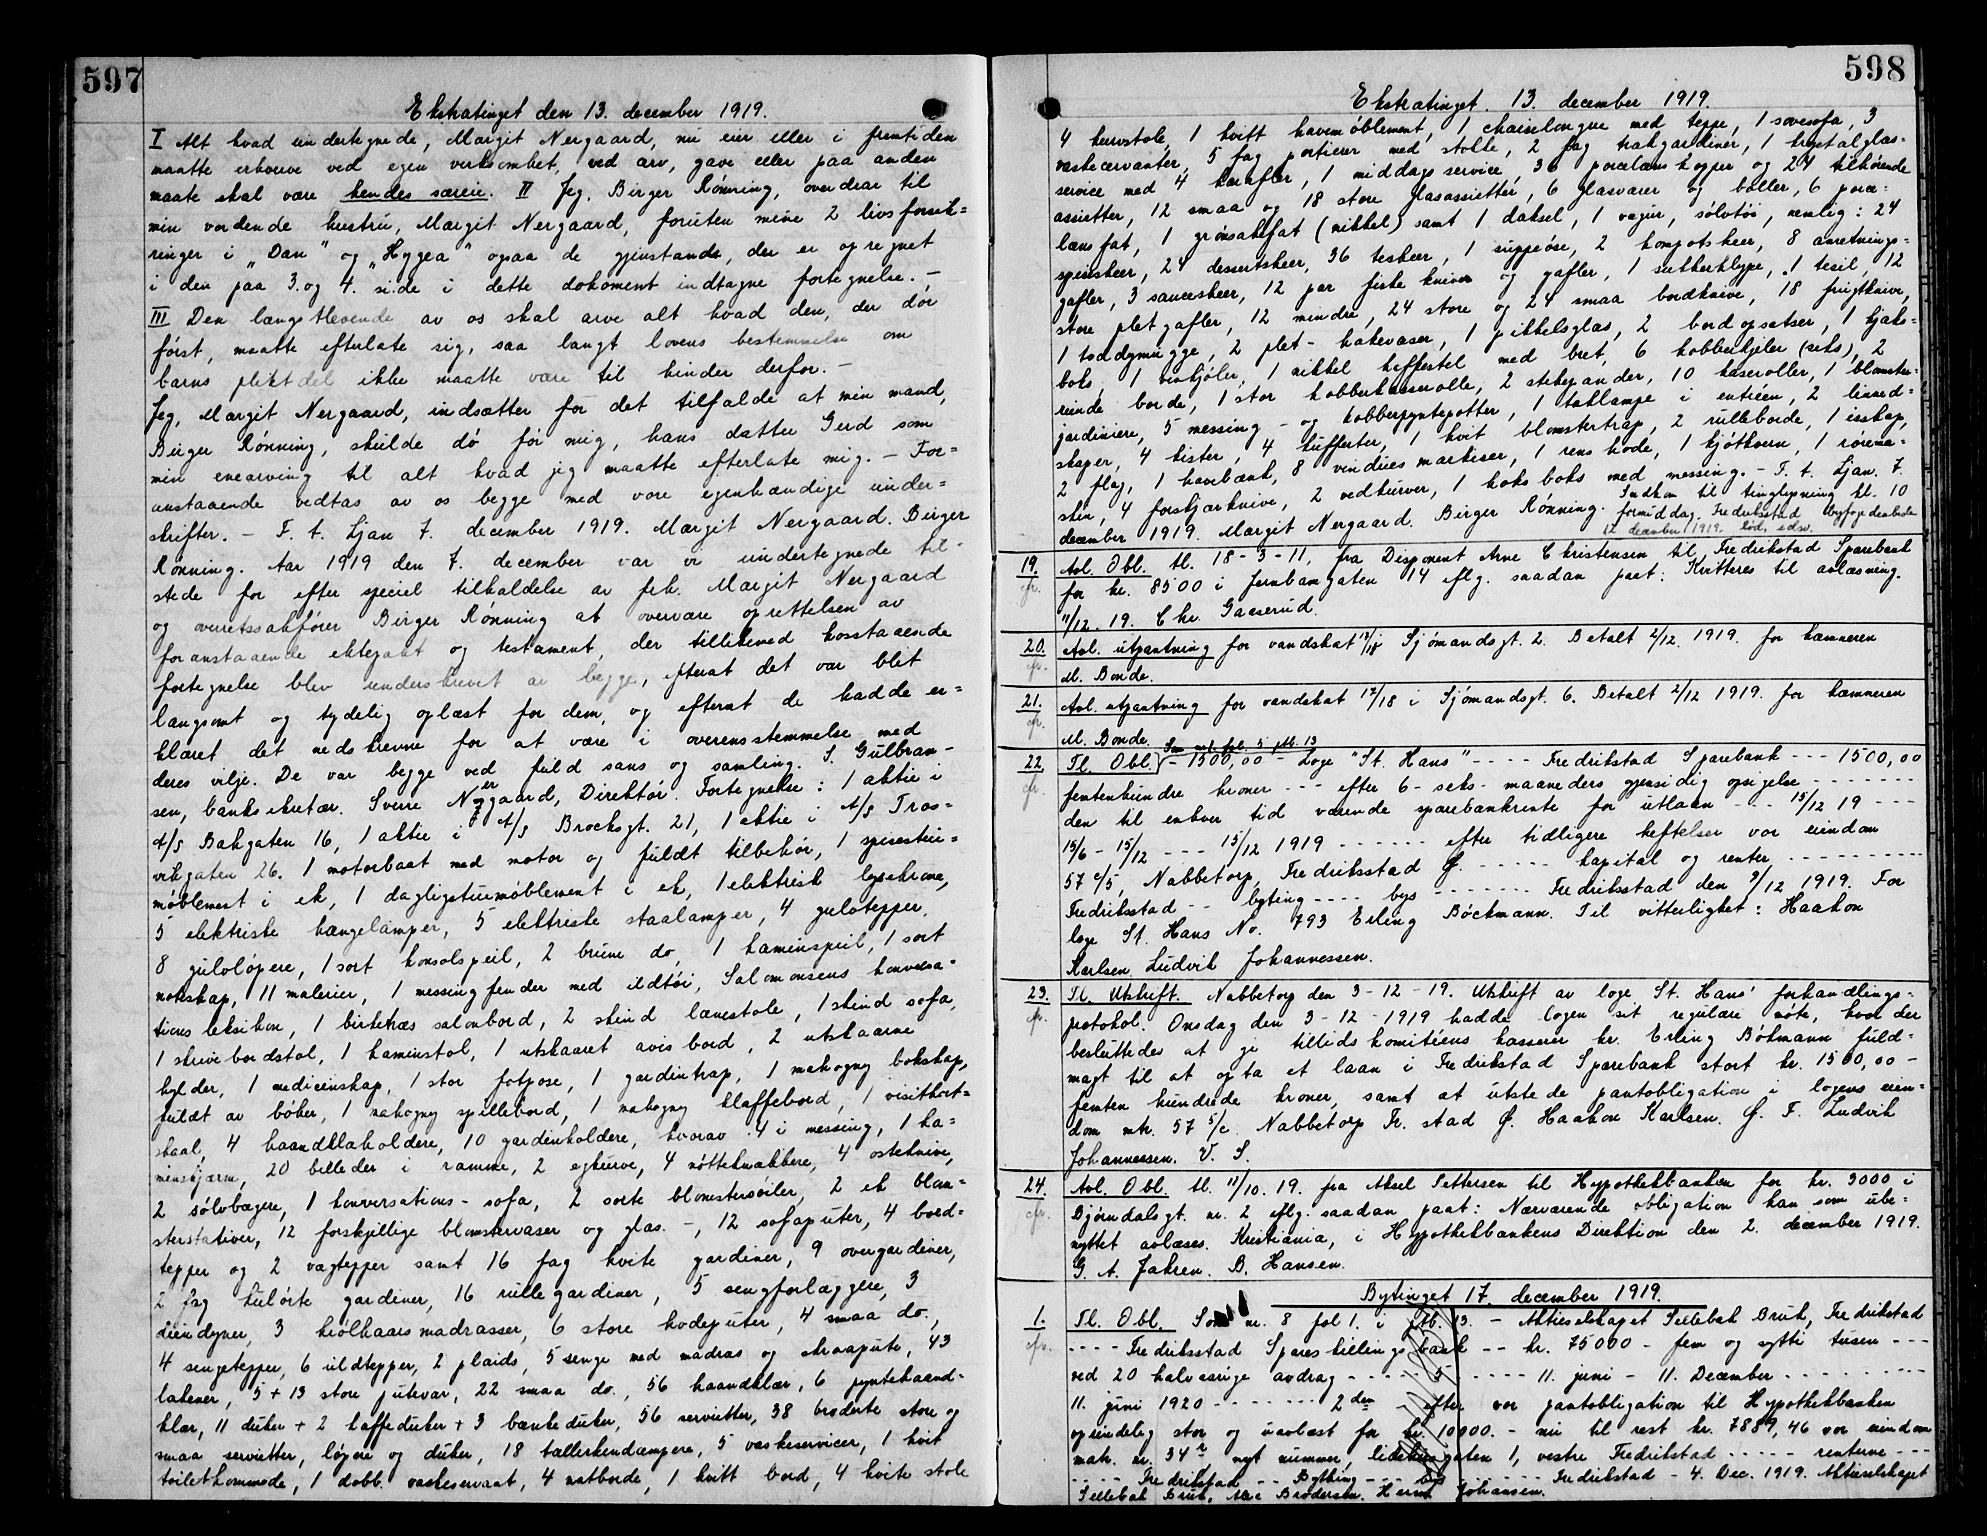 597
Ekstratinget den 13. december 1919.
I Alt hvad undertegnede, Margit Nergaard, nu eier eller i fremtiden
maatte erhverve ved egen virksomhet, ved arv, gave eller paa anden
maate skal være hendes særeie. II Jeg, Birger Rønning, overdrar til
min vordende hustru, Margit Nergaard, foruten mine 2 livsforsik=
ringer i "Dan" og "Hygea" ogsaa de gjenstande, der er opregnet
i den paa 3. og 4. side i dette dokument indtagne fortegnelse. -
III Den længstlevende av os skal arve alt hvad den, der dør
først, maatte efterlate sig, saa langt lovens bestemmelse om
barns pliktdel ikke maatte være til hinder derfor. -
Jeg, Margit Nergaard, indsætter for det tilfælde at min mand,
Birger Rønning, skulde dø før mig, hans datter Gerd som
min enearving til alt hvad jeg maatte efterlate mig. - For=
anstaaende vedtas av os begge med vore egenhændige under=
skrifter. - F. t. Ljan 7. december 1919. Margit Nergaard. Birger
Rønning. Aar 1919 den 7. december var vi undertegnede til-
stede for efter speciel tilkaldelse av frk. Margit Nergaard
og overretssakfører Birger Rønning at overvære oprettelsen av
foranstaaende ektepakt og testament, der tillikemed hosstaaende
fortegnelse blev underskrevet av begge, efterat det var blit
langsomt og tydelig oplæst for dem, og efterat de hadde er=
klæret det nedskrevne for at være i overensstemmelse med
deres vilje. De var begge ved fuld sans og samling. S. Gulbran-
sen, banksekretær. Sverre Nergaard, Direktør. Fortegnelse: 1 aktie i
A/S Bakgaten 16, 1 aktie i A/S Brochsgt. 21, 1 aktie i A/S Tros=
vikgaten 26. 1 motorbaat med motor og fuldt tilbehør, 1 spisestue=
møblement i ek, 1 dagligstuemøblement i ek, 1 elektrisk lysekrone,
5 elektriske hængelamper, 5 elektriske staalamper, 4 gulvtepper,
8 gulvløpere, 1 sort konsolspeil, 2 brune do, 1 kaminspeil, 1 sort
noteskap, 11 malerier, 1 messingfender med ildtøi, Salomonsens konversa=
tions leksikon, 1 birketræs salonbord, 2 skind lænestole, 1 skind sofa,
1 skrivebordstol, 1 kaminstol, 1 utskaaret avisbord, 2 utskaarne
hylder, 1 medicinskap, 1 stor fotpose, 1 gardintrap, 1 mahogny bokskap,
fuldt av bøker, 1 mahogny spillebord, 1 mahogny klaffebord, 1 visitkort=
skaal, 4 haandklæholdere, 10 gardinholdere, hvorav 4 i messing, 1 ka=
minskjærm, 20 billeder i ramme, 2 egkurve, 4 nøtteknækkere, 4 osteknive,
2 sølvbægere, 1 konversations-sofa, 2 sorte blomstersøiler, 2 ek blom=
sterstativer, 12 forskjellige blomstervaser og glas. -, 12 sofaputer, 4 bord=
tepper og 2 vægtepper samt 16 fag hvite gardiner, 9 overgardiner,
2 fag kulørte gardiner, 16 rullegardiner, 5 sengforlæggere, 3
dundyner, 3 krølhaarsmadrasser, 6 store hodeputer, 4 smaa do.,
4 sengetepper, 6 uldtepper, 2 plaids, 5 senge med madras og skraapute, 43
lakener, 5 + 13 store putevar, 22 smaa do., 56 haandklær, 6 pyntehaand=
klær, 11 duker + 2 kaffeduker + 3 bænkeduker, 56 servietter, 38 broderte store og
smaa servietter, løpere og duker, 18 tallerkendæmpere, 5 vaskeservicer, 1 hvit
toiletkommode, 1 dobb. vaskeservant, 4 natborde, 1 hvitt bord, 4 hvite stole
598
Ekstratinget 13. december 1919.
4 kurvstole, 1 hvitt havemøblement, 1 chaiselongue med teppe, 1 sovesofa, 3
vaskeservanter, 5 fag portierer med stolte, 2 fag trækgardiner, 1 krystalglas=
service med 4 karafler, 1 middagsservice, 36 porcelæns kopper og 24 tilhørende
assietter, 12 smaa og 18 store glasassietter, 6 glasvarer og boller, 6 porce=
lænsfat, 1 grønsakfat (nikkel) samt 1 daksel, 1 vogur, sølvtøi, nemlig: 24
spiseskeer, 24 dessertskeer, 36 teskeer, 1 suppeøse, 2 kompotskeer, 8 anretnings=
gafler, 3 sauceskeer, 12 par fiske kniver og gafler, 1 sukkerklype, 1 tesil, 12
store pletgafler, 12 mindre, 24 store og 24 smaa bordknive, 18 frugtknive,
1 toddymugge, 2 plet-kakevaser, 1 pikkelsglas, 2 bordopsatser, 1 kjæks=
boks, 1 vinkjøler, 1 nikkel kaffestel med bret, 6 kobberkjeler (seks), 2
runde borde, 1 stor kobberkasserolle, 2 stekepander, 10 kaseroller, 1 blomster=
jardiniere, 5 messing- og kobberpyntepotter, 1 taklampe i entréen, 2 linned=
skaper, 4 kister, 4 kufferter, 1 hvit blomstertrap, 2 rulleborde, 1 isskap,
2 flag, 1 havebænk, 8 vindues markiser, 1 rens kode, 1 kjøtkvern, 1 rørema=
skin, 4 forskjærknive, 2 vedkurver, 1 koksboks med messing. - F. t. Ljan 7.
december 1919. Margit Nergaard. Birger Rønning. Indkom til tinglysning kl. 10
formiddag. Fredriksstad byfogedembede
12 december 1919. Lods, edsv.
19. Avl. Obl. tl. 18-3-11, fra Disponent Arne Christensen til Fredrikstad Sparebank
for kr. 8500 i Jernbanegaten 14 eflg. saadan paat: Kvitteres til avlæsning.
11/12. 19. Chr. Gaaserud.
20. Avl. utpantning for vandskat 12/18 Sjømandsgt. 2. Betalt 2/12. 1919. for kæmneren
M. Bonde.
21. Avl. utpantning for vandskat 12/18 i Sjømandsgt. 6. Betalt 2/12 1919. for kæmneren
M. Bonde.
Som nr. fol. 5 ptb. 13
22. Tl. Obl. - 1500,00 - Loge "St. Hans" - - - - Fredrikstad Sparebank - - - 1500,00
femtenhundre kroner - - - efter 6-seks-maaneders gjensidig opsigelse - - - - - - -
den til enhver tid værende sparebankrente for utlaan - - - 15/12 19 - - -
15/6 - 15/12 - - - 15/12 1919 - - - - - - efter tidligere heftelser vor eiendom
57 c/5, Nabbetorp, Fredriksstad Ø. - - - - - kapital og renter - - - - - - - - - -
Fredriksstad - - byting - - - - bys - - - - - - - Fredriksstad den 9/12 1919. For
loge St. Hans No. 793 Erling Böckmann. Til vitterlighet: Haakon
Karlsen. Ludvik Johannessen.
23. Tl. Utskrift. Nabbetorp den 3-12-19. Utskrift av loge St. Hans' forhandlings=
protokol. Onsdag den 3-12-1919 hadde logen sit regulære møte, hvor der
besluttedes at gi tillidskomitéens kasserer hr. Erling Bökmann fuld=
magt til at opta et laan i Fredrikstad Sparebank stort kr. 1500,00 -
femten hundrede kroner, samt at utstede pantobligation i logens eien=
dom mtr. 57 5/c. Nabbetorp Fr. stad Ø. Haakon Karlsen. Ø. F. Ludvik
Johannessen. V. S.
24. Avl. Obl. tl. 11/10. 19. fra Aksel Pettersen til Hypothekbanken for kr. 3000 i
Bjørndalsgt. nr. 2 eflg. saadan paat: Nærværende obligation kan som ube=
nyttet avlæses. Kristiania, i Hypothekbankens Direktion den 2. december 1919.
G. A. Jahren. B. Hansen.
Bytinget 17. december 1919.
1. Tl. Obl. Som nr. 8 fol 1. i ptb. 13. - Aktieselskapet Seilebak Bruk, Fredrikstad
- - - - Fredriksstad Sparestillings bank - - kr. 75000 - fem og sytti tusen - - -
ved 20 halvaarige avdrag - - - - - 5 - - - - - 11. juni - 11. December - - - - - - - -
11. juni 1920 - - - - - - - 2den - efter vor pantobligation til Hypothekbanken
oprindelig stor og uavlæst for kr. 10000. - nu til rest kr. 7889,46 vor eiendom
matr. nr. 34 nyt nummer, gaten 1, vestre Fredrikstad - - - - - renterne - - -
- - - - Fredrikstad - - Byting - - - bys - - - - - Fredrikstad - 4. Dec. 1919. Aktieselskapet
Seilebak Bruk, Brodersen. Herm. Johansen.